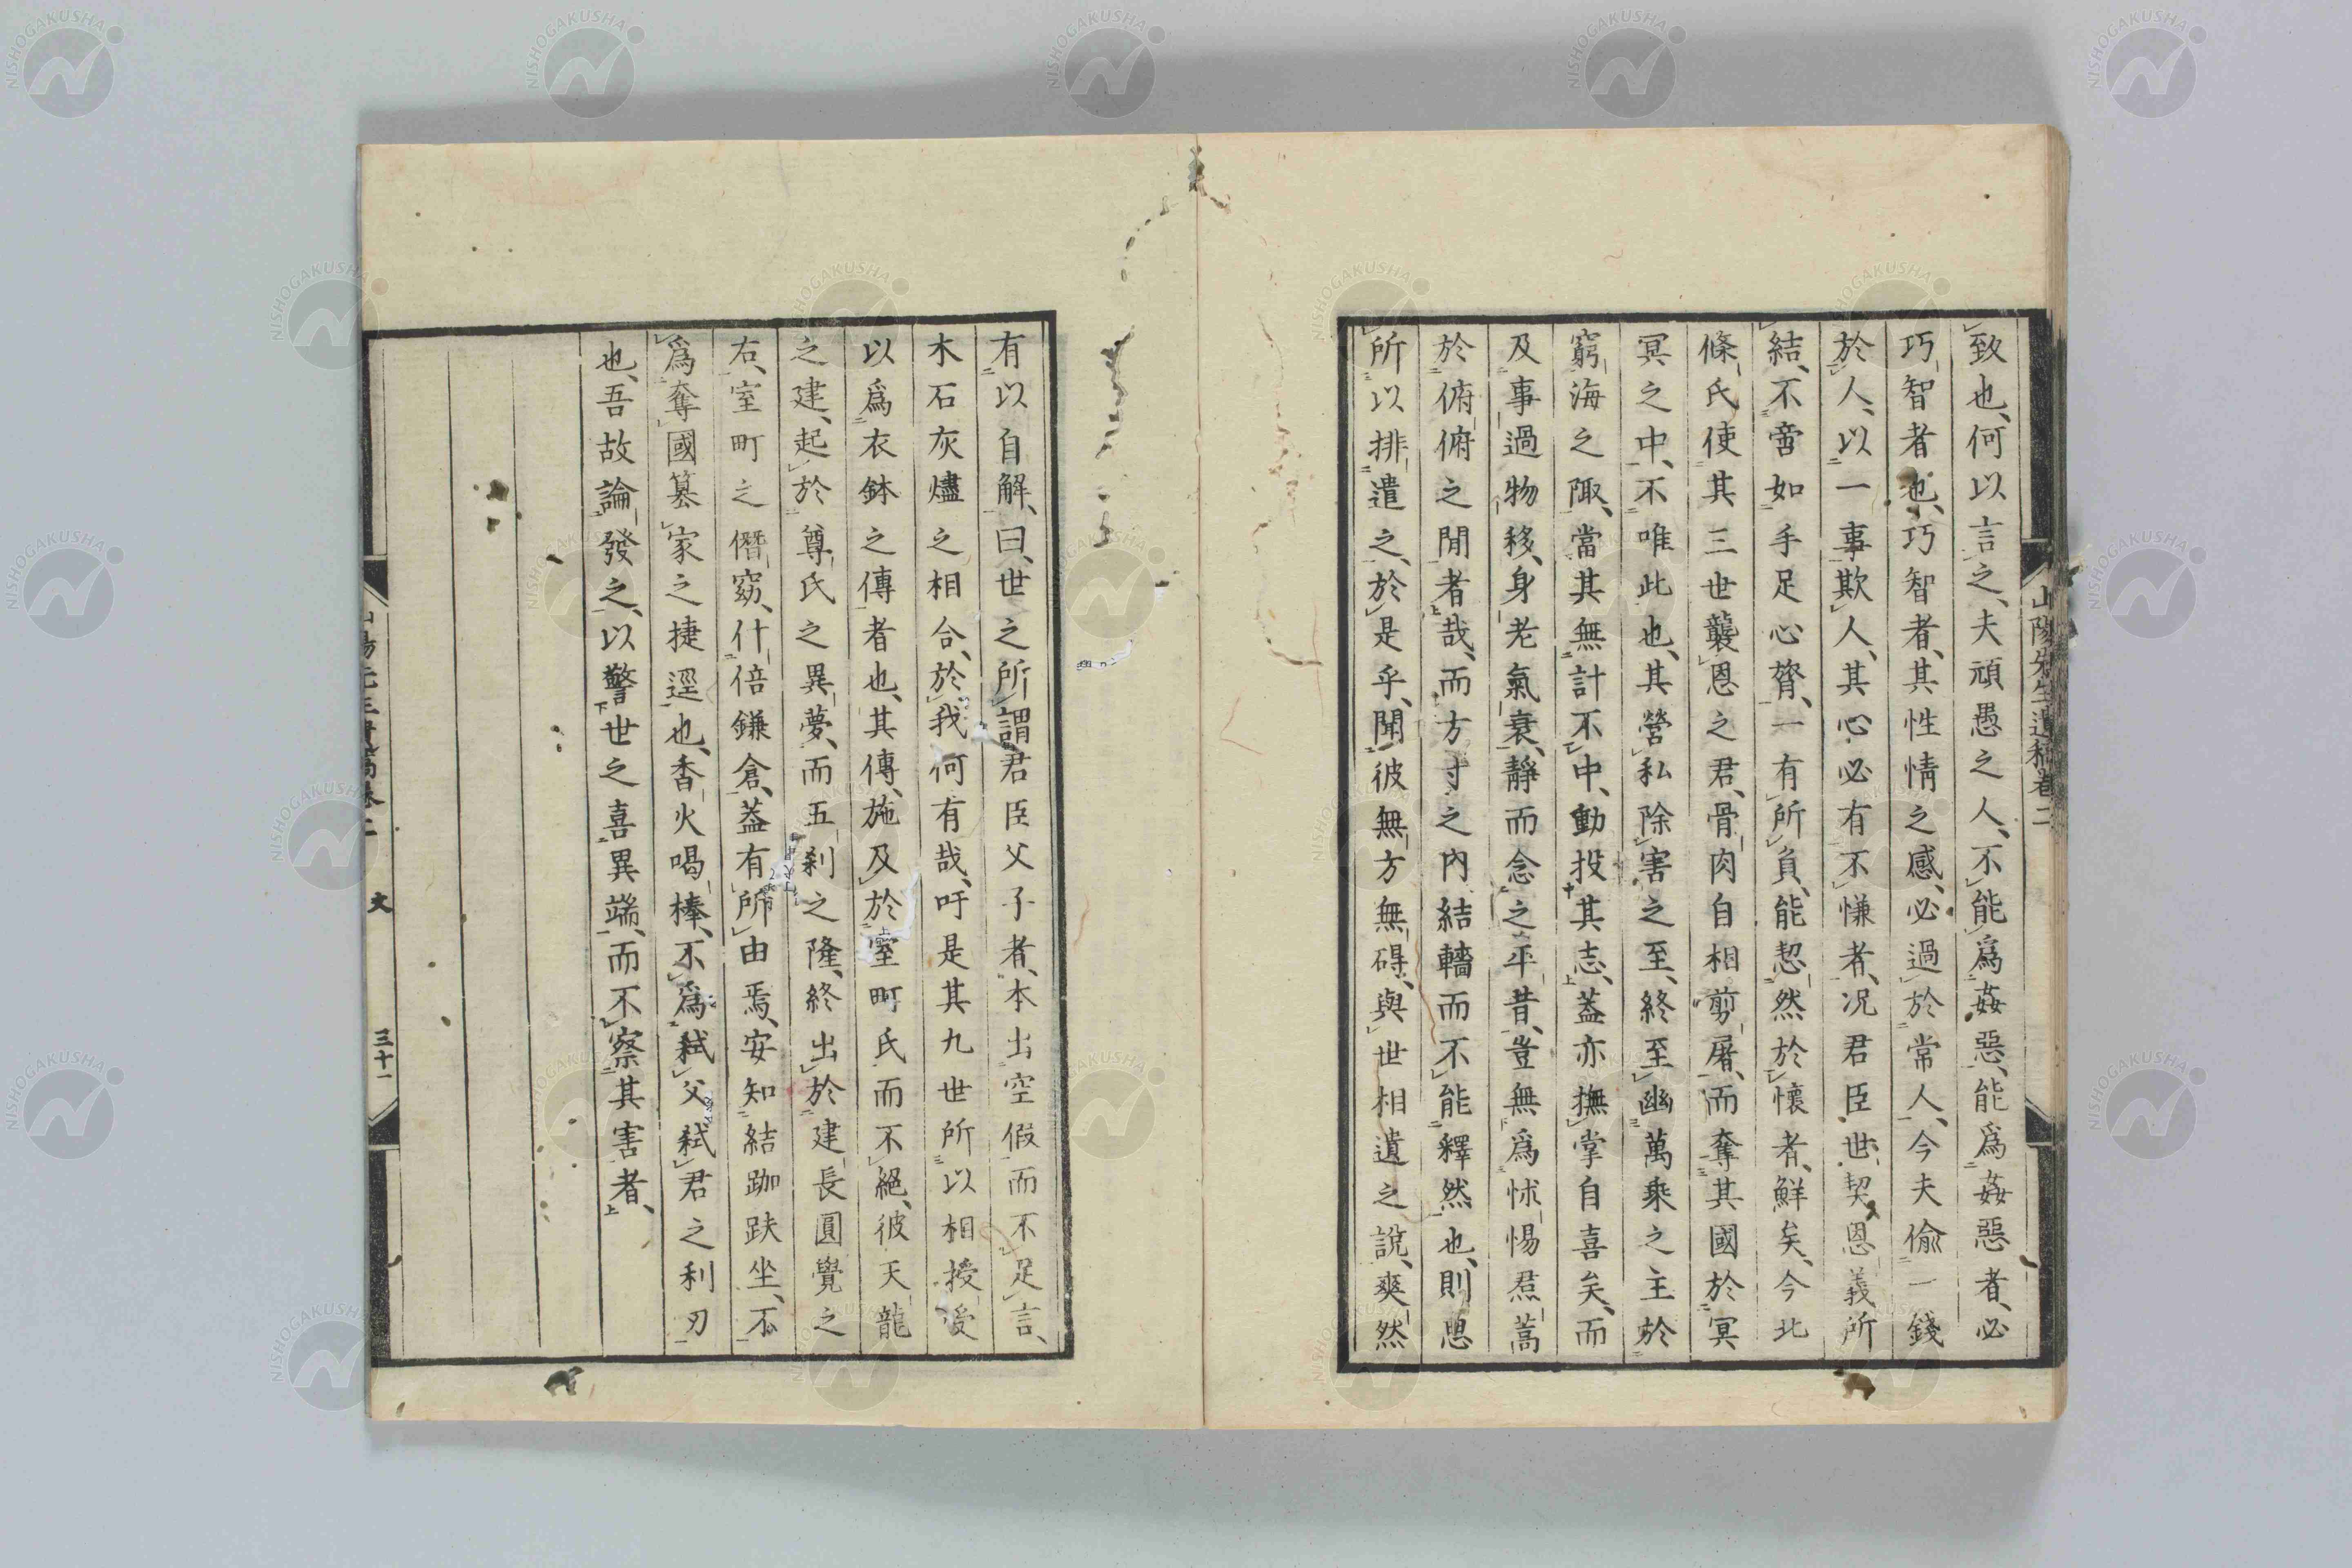 致也、何以言之、夫頑愚之人、不能爲姦惡、能爲姦惡者、必
巧智者也、巧智者、其性情之感、必過於常人、今夫偸一錢
於人、以一事欺人、其心必有不慊者、况君臣世契恩義所
結、不啻如手足心膂、一有所負、能恝然於懷者、鮮矣、今北
條氏使其三世襲恩之君、骨肉自相剪屠、而奪其國於冥
冥之中、不唯此也、其營私除害之至、終至幽萬乘之主於
窮海之陬、當其無計不中、動投其志、蓋亦撫掌自喜矣、而
及事過物移、身老氣衰、靜而念之平昔、豈無爲怵惕焄蒿
於俯俯之間者哉、而方寸之內、結轖而不能釋然也、則思
所以排遣之、於是乎、聞彼無方無碍、與世相遺之說、爽然
有以自解、曰、世之所謂君臣父子者、本出空假而不足言、
木石灰燼之相合、於我何有哉、吁是其九世所以相授受
以爲衣鉢之傳者也、其傳、施及於室町氏而不絕、彼天龍
之建、起於尊氏之異夢、而五刹之隆、終出於建長圓覺之
右、室町之僭竊、什倍鎌倉、蓋有所由焉、安知結跏趺坐、不
爲奪國簒家之捷逕也、香火喝棒、不爲弑父弑君之利刃
也、吾故論發之、以警世之喜異端、而不察其害者、
山陽先生遺稿卷二
文
三十一
NISHOGAKUSHA